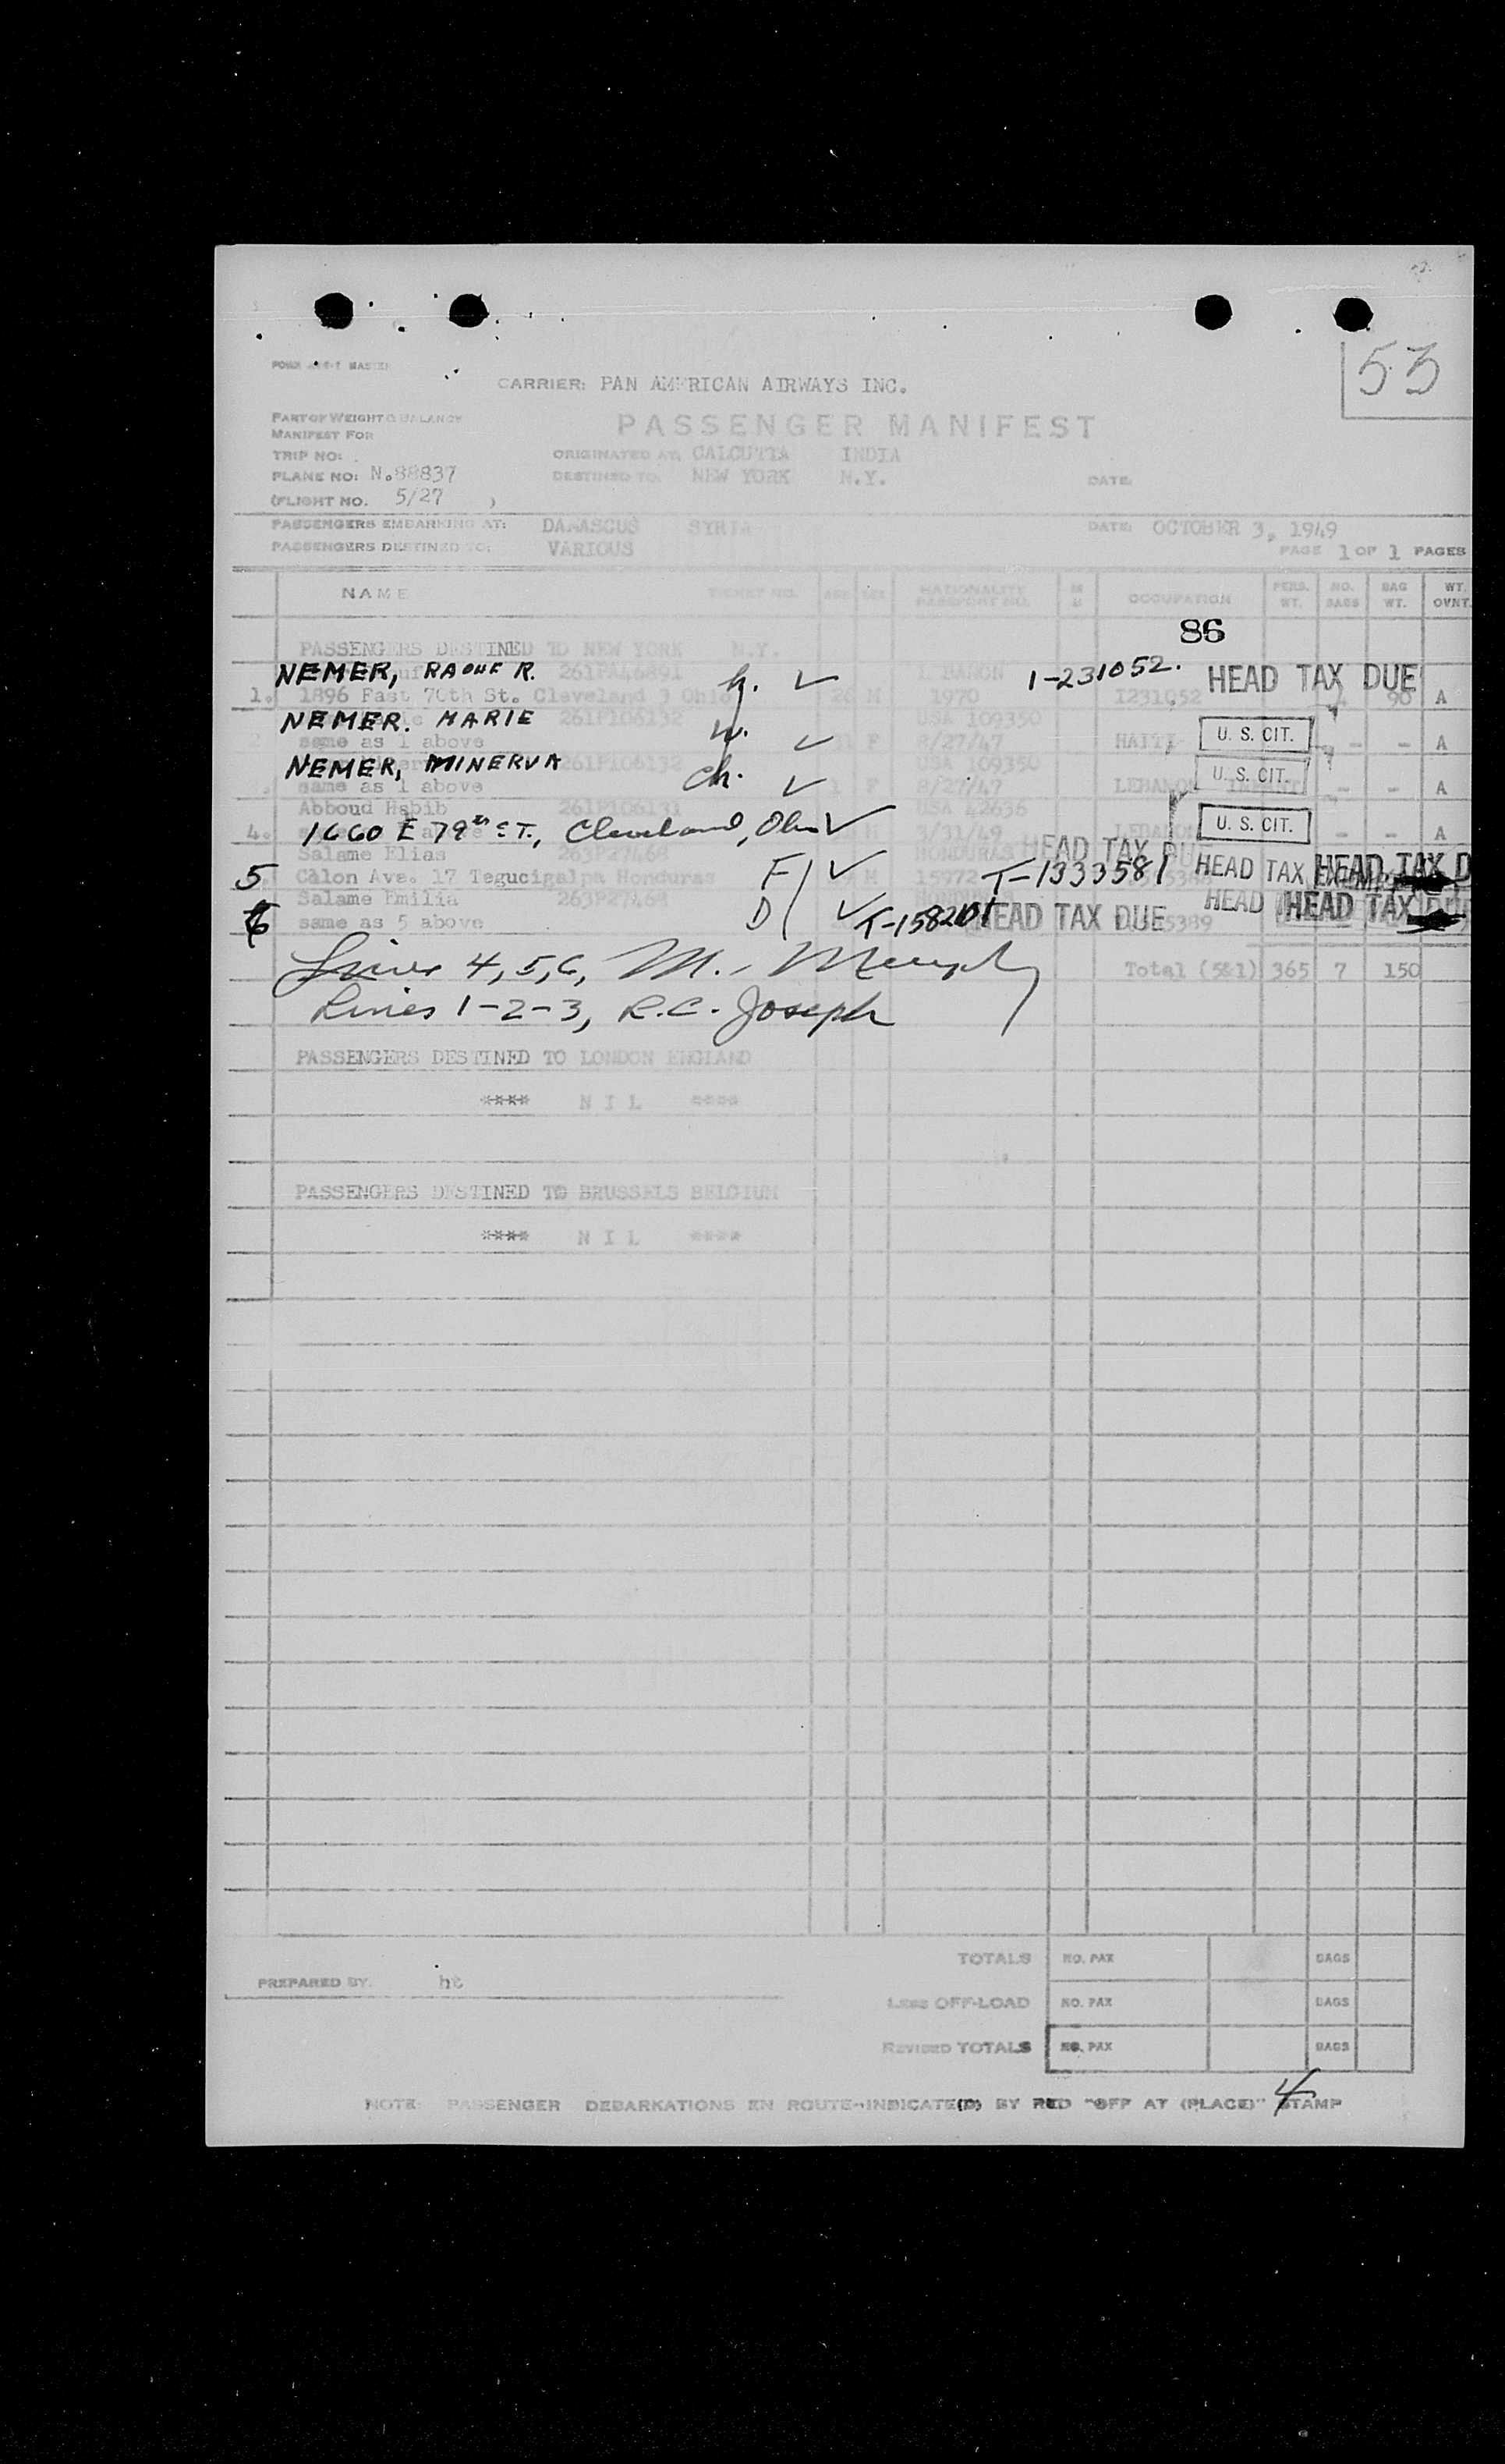 53
CARRIER: PAN AMERICAN AIRWAYS INC.
PART OF WEIGHT & BALANCE
MANIFEST FOR
PASSENGER MANIFEST
TRIP NO: ORIGINATED AT: CALCUTTA INDIA
PLANE NO: N.88837 DESTINED TO: NEW YORK N.Y. DATE:
(FLIGHT NO. 5/27 )
PASSENGERS EMBARKING AT: DAMASCUS SYRIA DATE: OCTOBER 3, 1949
PASSENGERS DESTINED TO: VARIOUS PAGE 1 OF 1 PAGES
NAME TICKET NO. AGE SEX NATIONALITY PASSPORT NO. OCCUPATION PERS. WT. NO. BAGS BAG WT. WT. OVNT.
86
PASSENGERS DESTINED TO NEW YORK N.Y.
NEMER, RAOUF R. 261PA46891 h. 1-231052. HEAD TAX DUE
1. 1896 East 70th St. Cleveland 3 Ohio M 1970 I231052 90 A
NEMER. MARIE 261P106132 w. USA 109350 U. S. CIT.
2 same as 1 above F 8/27/47 HAITI - - A
NEMER, MINERVA 261P106132 ch. USA 109350 U. S. CIT.
same as 1 above F 8/27/47 LEBANON INFANT - - A
Abboud Habib 261P106131 USA 42636 U. S. CIT.
4. 1660 E 79th ST., Cleveland, Ohio M 3/31/49 LEBANON - - A
Salame Elias 263P27468 HONDURAS HEAD TAX DUE
5 Calon Ave. 17 Tegucigalpa Honduras F M 15772 T-1333581 HEAD TAX HEAD TAX D
Salame Emilia 263P27468 HEAD HEAD TAX
6 same as 5 above D T-158201 HEAD TAX DUE 5389
Lines 4,5,6, M. Murphy Total (5&1) 365 7 150
Lines 1-2-3, R.C. Joseph
PASSENGERS DESTINED TO LONDON ENGLAND
**** N I L ****
PASSENGERS DESTINED TO BRUSSELS BELGIUM
**** N I L ****
TOTALS NO. PAX BAGS
PREPARED BY: ht
LESS OFF-LOAD NO. PAX BAGS
REVISED TOTALS NO. PAX BAGS
4
NOTE: PASSENGER DEBARKATIONS EN ROUTE-INDICATE(D) BY RED "OFF AT (PLACE)" STAMP